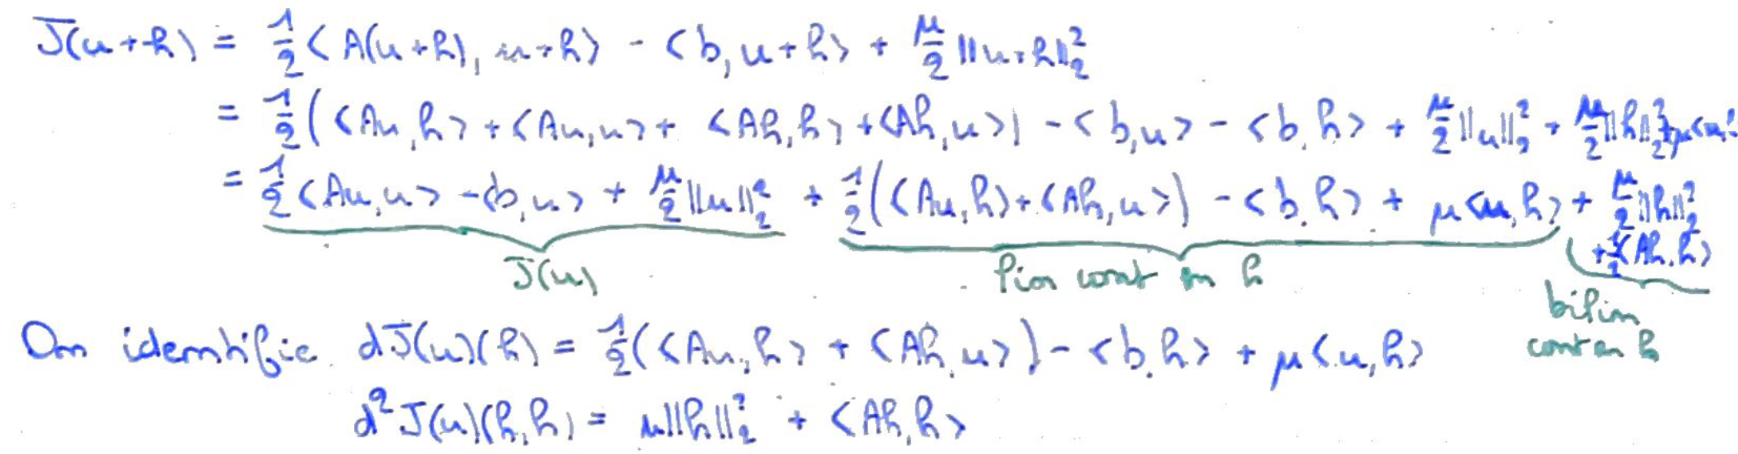 J(u+h) = 1/2 <A(u+h), u+h> - <b, u+h> + μ/2 ||u+h||₂²
= 1/2 ( <Au,h> + <Au,u> + <Ah,h> + <Ah,u> ) - <b,u> - <b,h> + μ/2 ||u||₂² + μ/2 ||h||₂² + μ<u,
= 1/2 <Au,u> - <b,u> + μ/2 ||u||₂² + 1/2 ( <Au,h> + <Ah,u> ) - <b,h> + μ<u,h> + μ/2 ||h||₂²
+ 1/2 <Ah,h>
J(u) lin cont en h bilin
cont en h
On identifie dJ(u)(h) = 1/2 ( <Au,h> + <Ah,u> ) - <b,h> + μ<u,h>
d²J(u)(h,h) = μ||h||₂² + <Ah,h>